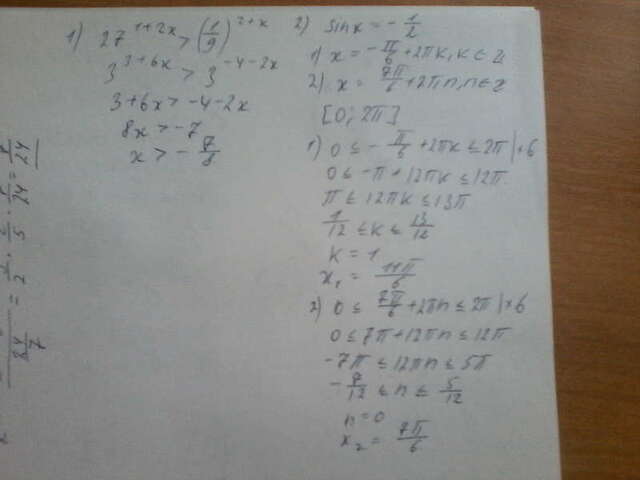 1) 27^(1+2x) > (1/9)^(2+x)
3^(3+6x) > 3^(-4-2x)
3+6x > -4-2x
8x > -7
x > -7/8
2) sinx = -1/2
1) x = -π/6 + 2πk, k ∈ Z
2) x = 7π/6 + 2πn, n ∈ Z
[0; 2π]
1) 0 ≤ -π/6 + 2πk ≤ 2π | ×6
0 ≤ -π + 12πk ≤ 12π
π ≤ 12πk ≤ 13π
1/12 ≤ k ≤ 13/12
k = 1
x₁ = 11π/6
2) 0 ≤ 7π/6 + 2πn ≤ 2π | ×6
0 ≤ 7π + 12πn ≤ 12π
-7π ≤ 12πn ≤ 5π
-7/12 ≤ n ≤ 5/12
n = 0
x₂ = 7π/6